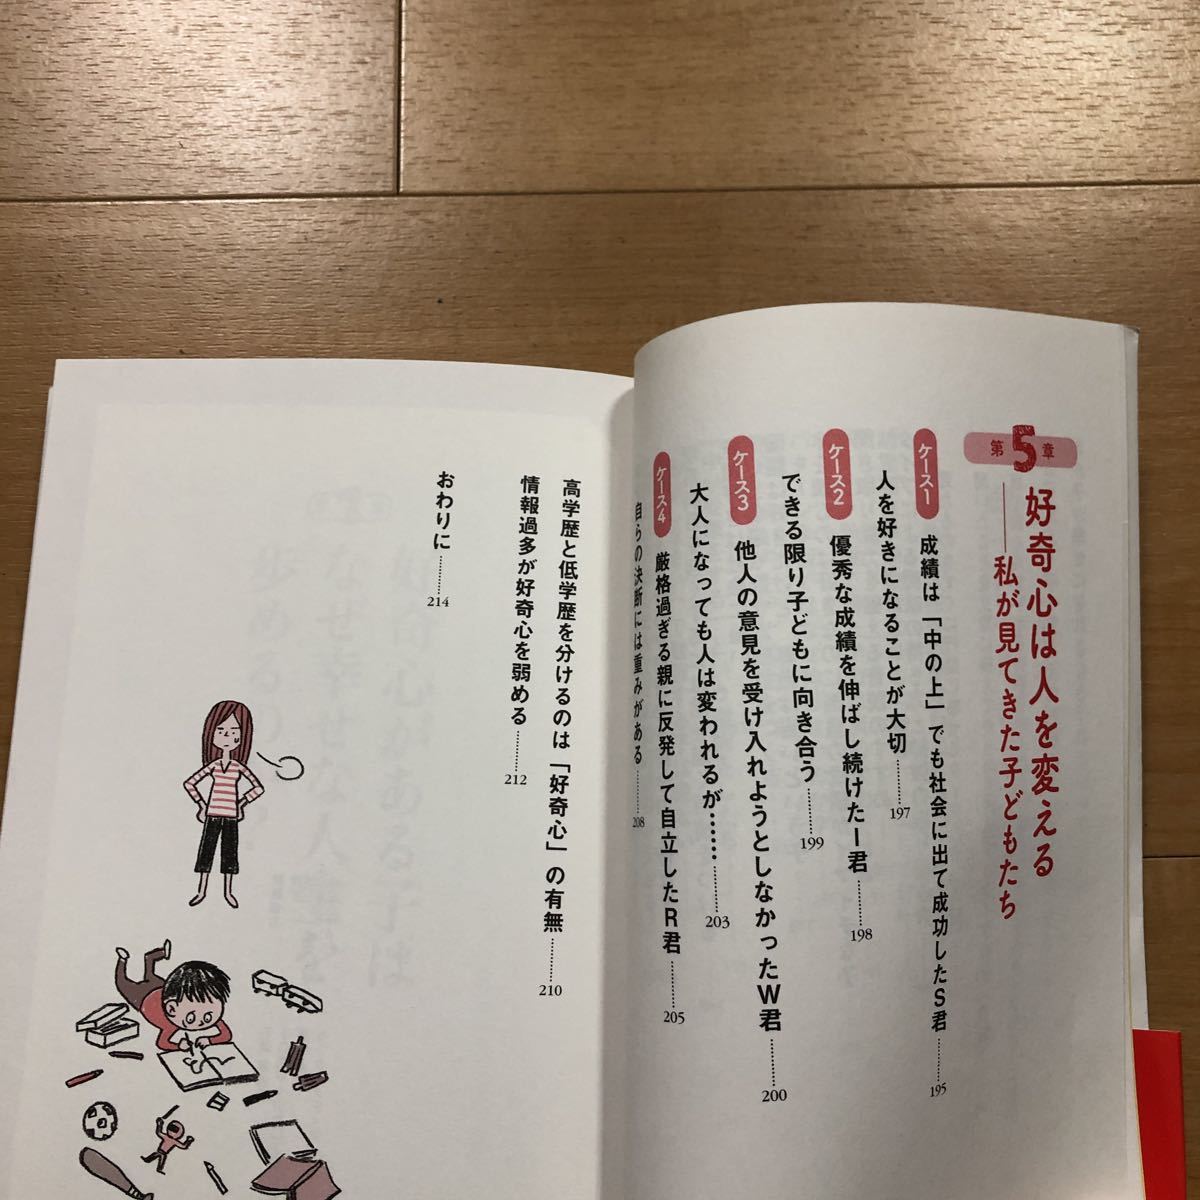 第5章
好奇心は人を変える
――私が見てきた子どもたち
ケース1 成績は「中の上」でも社会に出て成功したS君………195
人を好きになることが大切………197
ケース2 優秀な成績を伸ばし続けたI君………198
できる限り子どもに向き合う………199
ケース3 他人の意見を受け入れようとしなかったW君………200
大人になっても人は変われるが……………203
ケース4 厳格過ぎる親に反発して自立したR君………205
自らの決断には重みがある………208
高学歴と低学歴を分けるのは「好奇心」の有無………210
情報過多が好奇心を弱める………212
おわりに………214